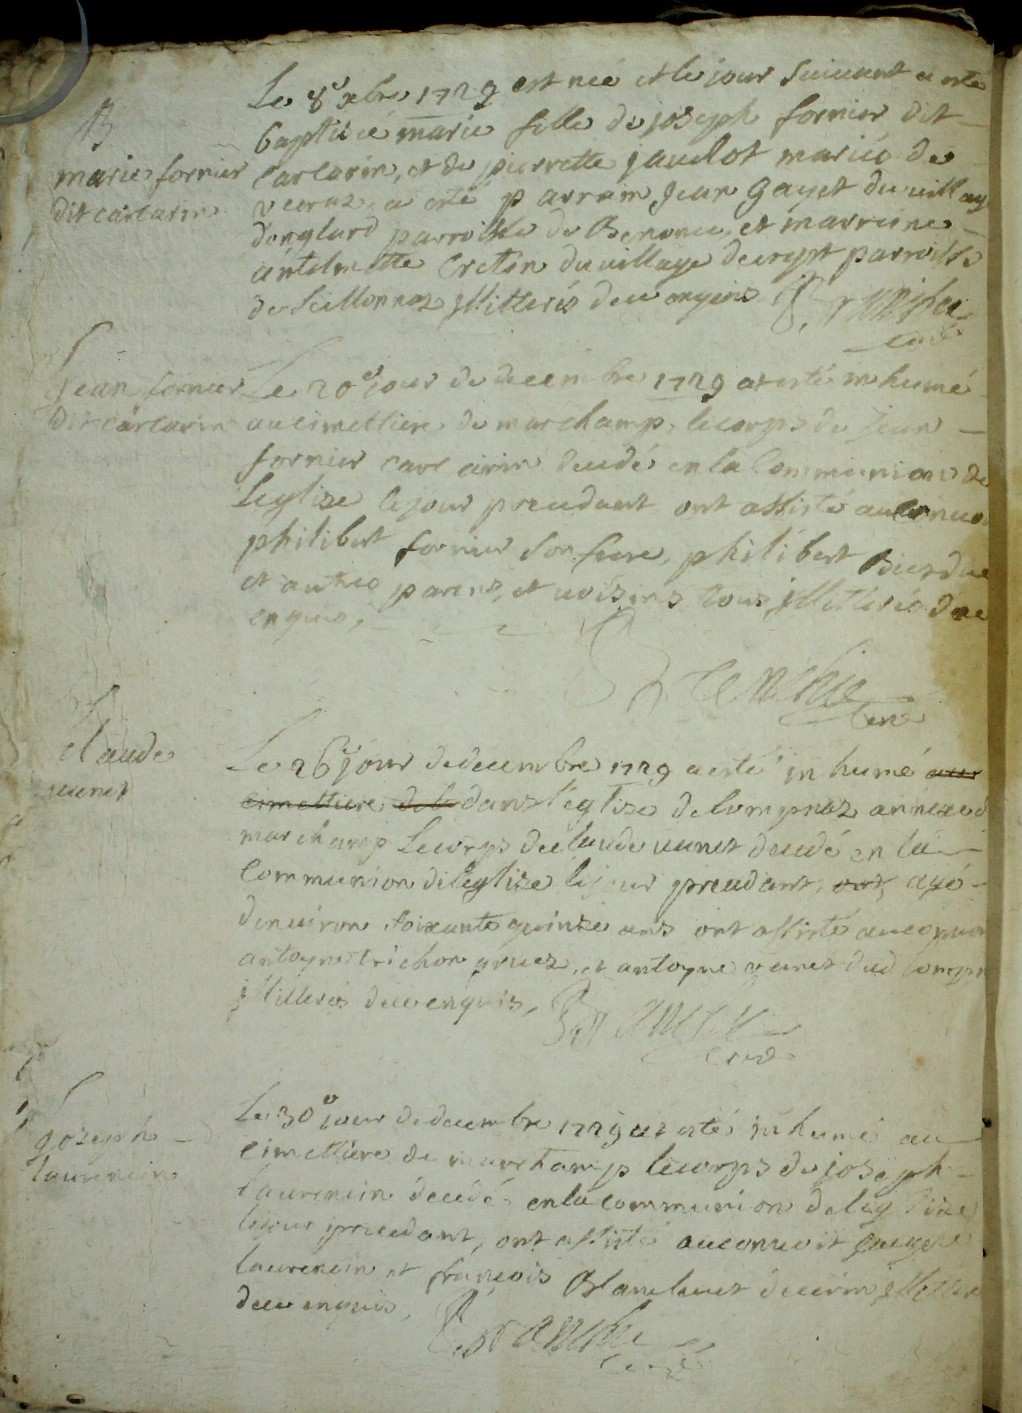 B
marie fornier
dit carcarin
Le 8e xbre 1729 est née et le jour suivant a esté
baptisée marie fille de joseph fornier dit
carcarin, et de pierrette jaudot mariés de
a esté parrain jean gayet du village
d'onglard parroisse de Benonce, et marreine
antelmette creton du village de crept parroisse
de seillonnaz illitterés de ce enquis
curé
Jean fornier
dit carcarin
Le 20e jour de decembre 1729 at esté inhumé
au cimettiere de marchamp, le corps de jean
fornier carcarin decedé en la Communion de
L'eglize le jour precedent ont assisté au convoi
philibert fornier son frere, philibert
et autres parens, et voisins tous illitterés de ce
enquis,
curé
Claude
vunet
Le 26e jour de decembre 1729 a esté inhumé au
cimettiere de la dans l'eglize de lompnaz annexe d
marchamp Le corps de claude vunet decedé en la
Communion de l'eglize le jour precedant, ont agé
d'environ soixante quinze ans ont assisté au convoi
antoyne trichon gruez, et antoyne vunet dud lompn
illiterés de ce enquis,
curé
Joseph
laurencin
Le 30e jour de decembre 1729 at esté inhumé au
cimettiere de marchamp le corps de joseph
laurencin decedé en la communion de leglize
le jour precedant, ont assisté au convoit
laurencin et françois Blanchet
de ce enquis,
curé